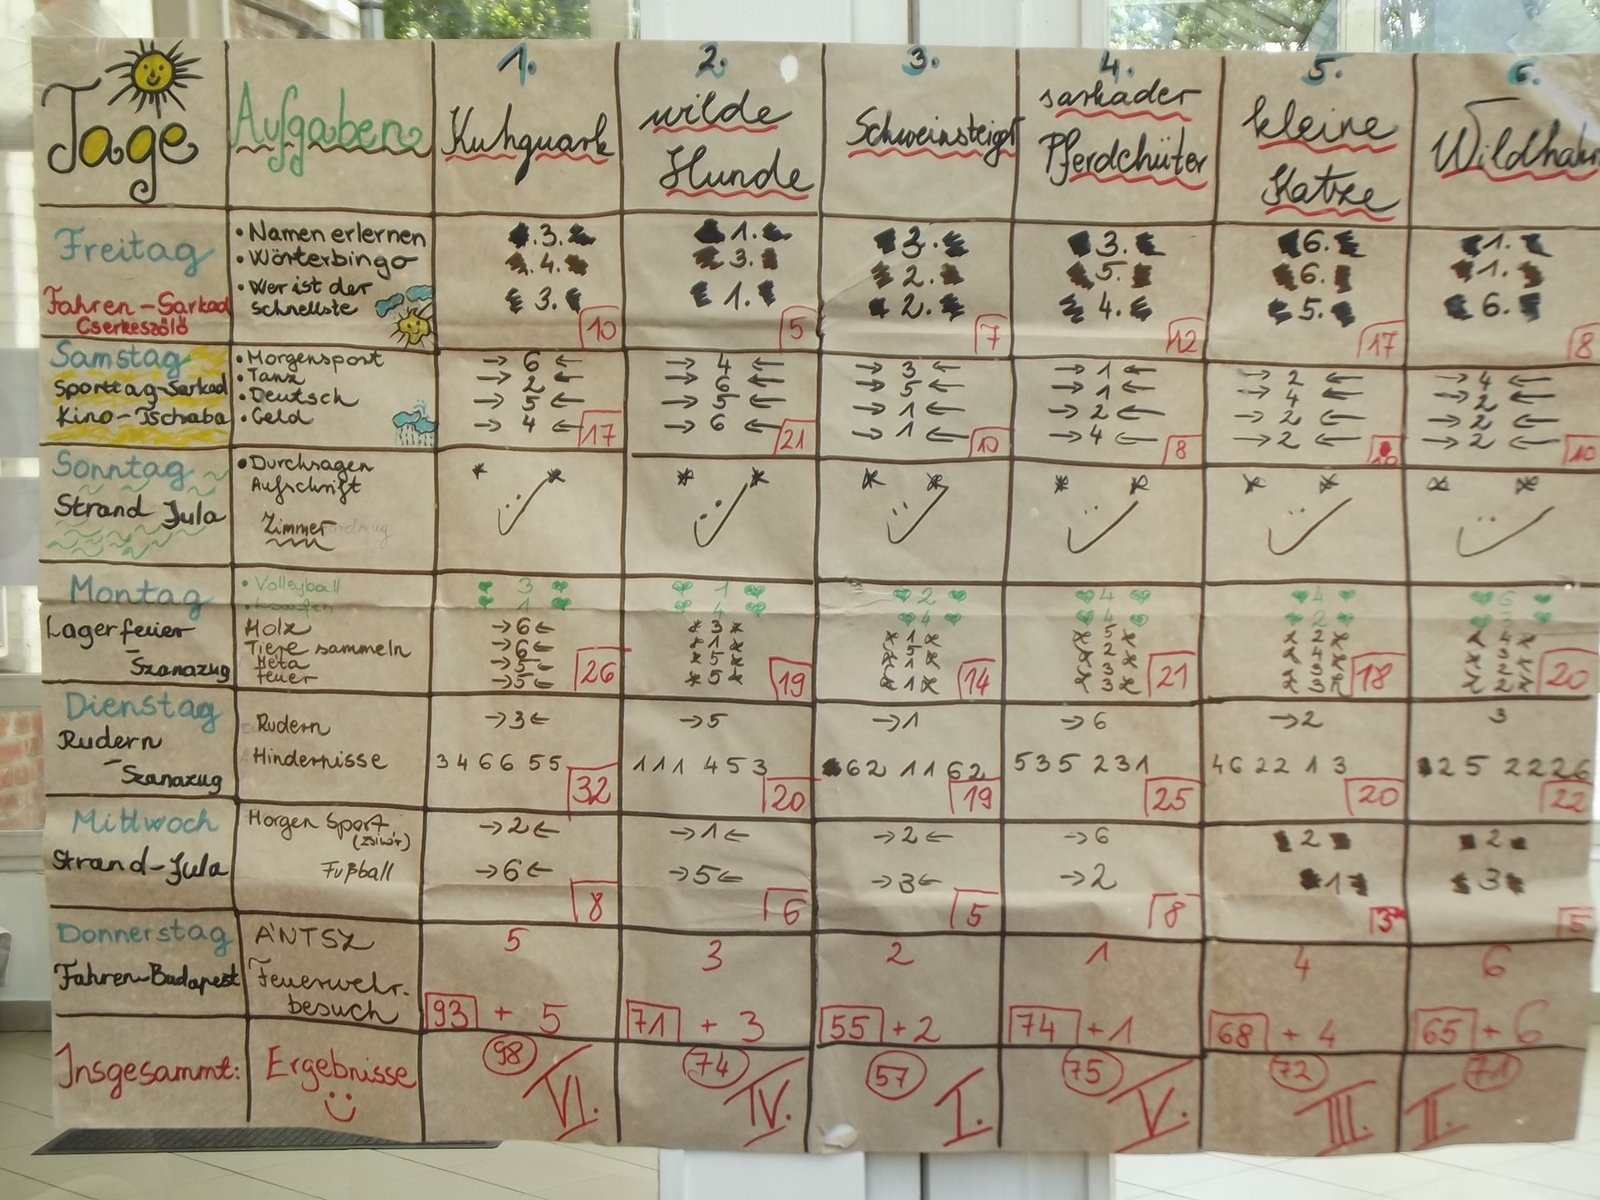 Tage Aufgaben 1. Kuhquark 2. wilde Hunde 3. Schweinsteiger 4. sarkader Pferdchüter 5. kleine Katze 6. Wildhahn
Freitag
Fahren - Sarkad
Cserkeszőlő
• Namen erlernen .3. .1. .2. .3. .6. .1.
• Wörterbingo .4. .3. .2. .5. .6. .1.
• Wer ist der schnellste 3. .1. .2. .4. .5. 6.
10 5 7 12 17 8
Samstag
Sporttag-Sarkad
Kino - Tschaba
• Morgensport → 6 ← → 4 ← → 3 ← → 1 ← → 2 ← → 4 ←
• Tanz → 2 ← → 6 ← → 5 ← → 1 ← → 4 ← → 2 ←
• Deutsch → 5 ← → 5 ← → 1 ← → 2 ← → 2 ← → 2 ←
• Geld → 4 ← → 6 ← → 1 ← → 4 ← → 2 ← → 2 ←
17 21 10 8 10 10
Sonntag
Strand Jula
• Durchsagen
Aufschrift
Zimmer
Montag
Lagerfeuer
- Szanazug
• Volleyball 3 1 2 4 4 6
• Laufen 1 4 4 4 2
Holz →6← 3 1 5 2 4
Tiere sammeln →6← 1 5 2 4 3
Méta →5← 5 1 3 3
feuer →5← 5 1 3 3 2
26 19 14 21 18 20
Dienstag
Rudern
- Szanazug
Rudern →3← →5 →1 →6 →2 3
Hindernisse 3 4 6 6 5 5 1 1 1 4 5 3 6 2 1 1 6 2 5 3 5 2 3 1 4 6 2 2 1 3 2 5 2 2 2 6
32 20 19 25 20 22
Mittwoch
Strand-Jula
Morgen Sport →2← →1← →2← →6 2 2
Fußball →6← →5← →3← →2 1 3
8 6 5 8 3 5
Donnerstag
Fahren-Budapest
ÁNTSZ
Feuerwehr-
besuch
5 3 2 1 4 6
93 + 5 71 + 3 55 + 2 74 + 1 68 + 4 65 + 6
Insgesammt: Ergebnisse 98 VI. 74 IV. 57 I. 75 V. 72 III. 71 II.